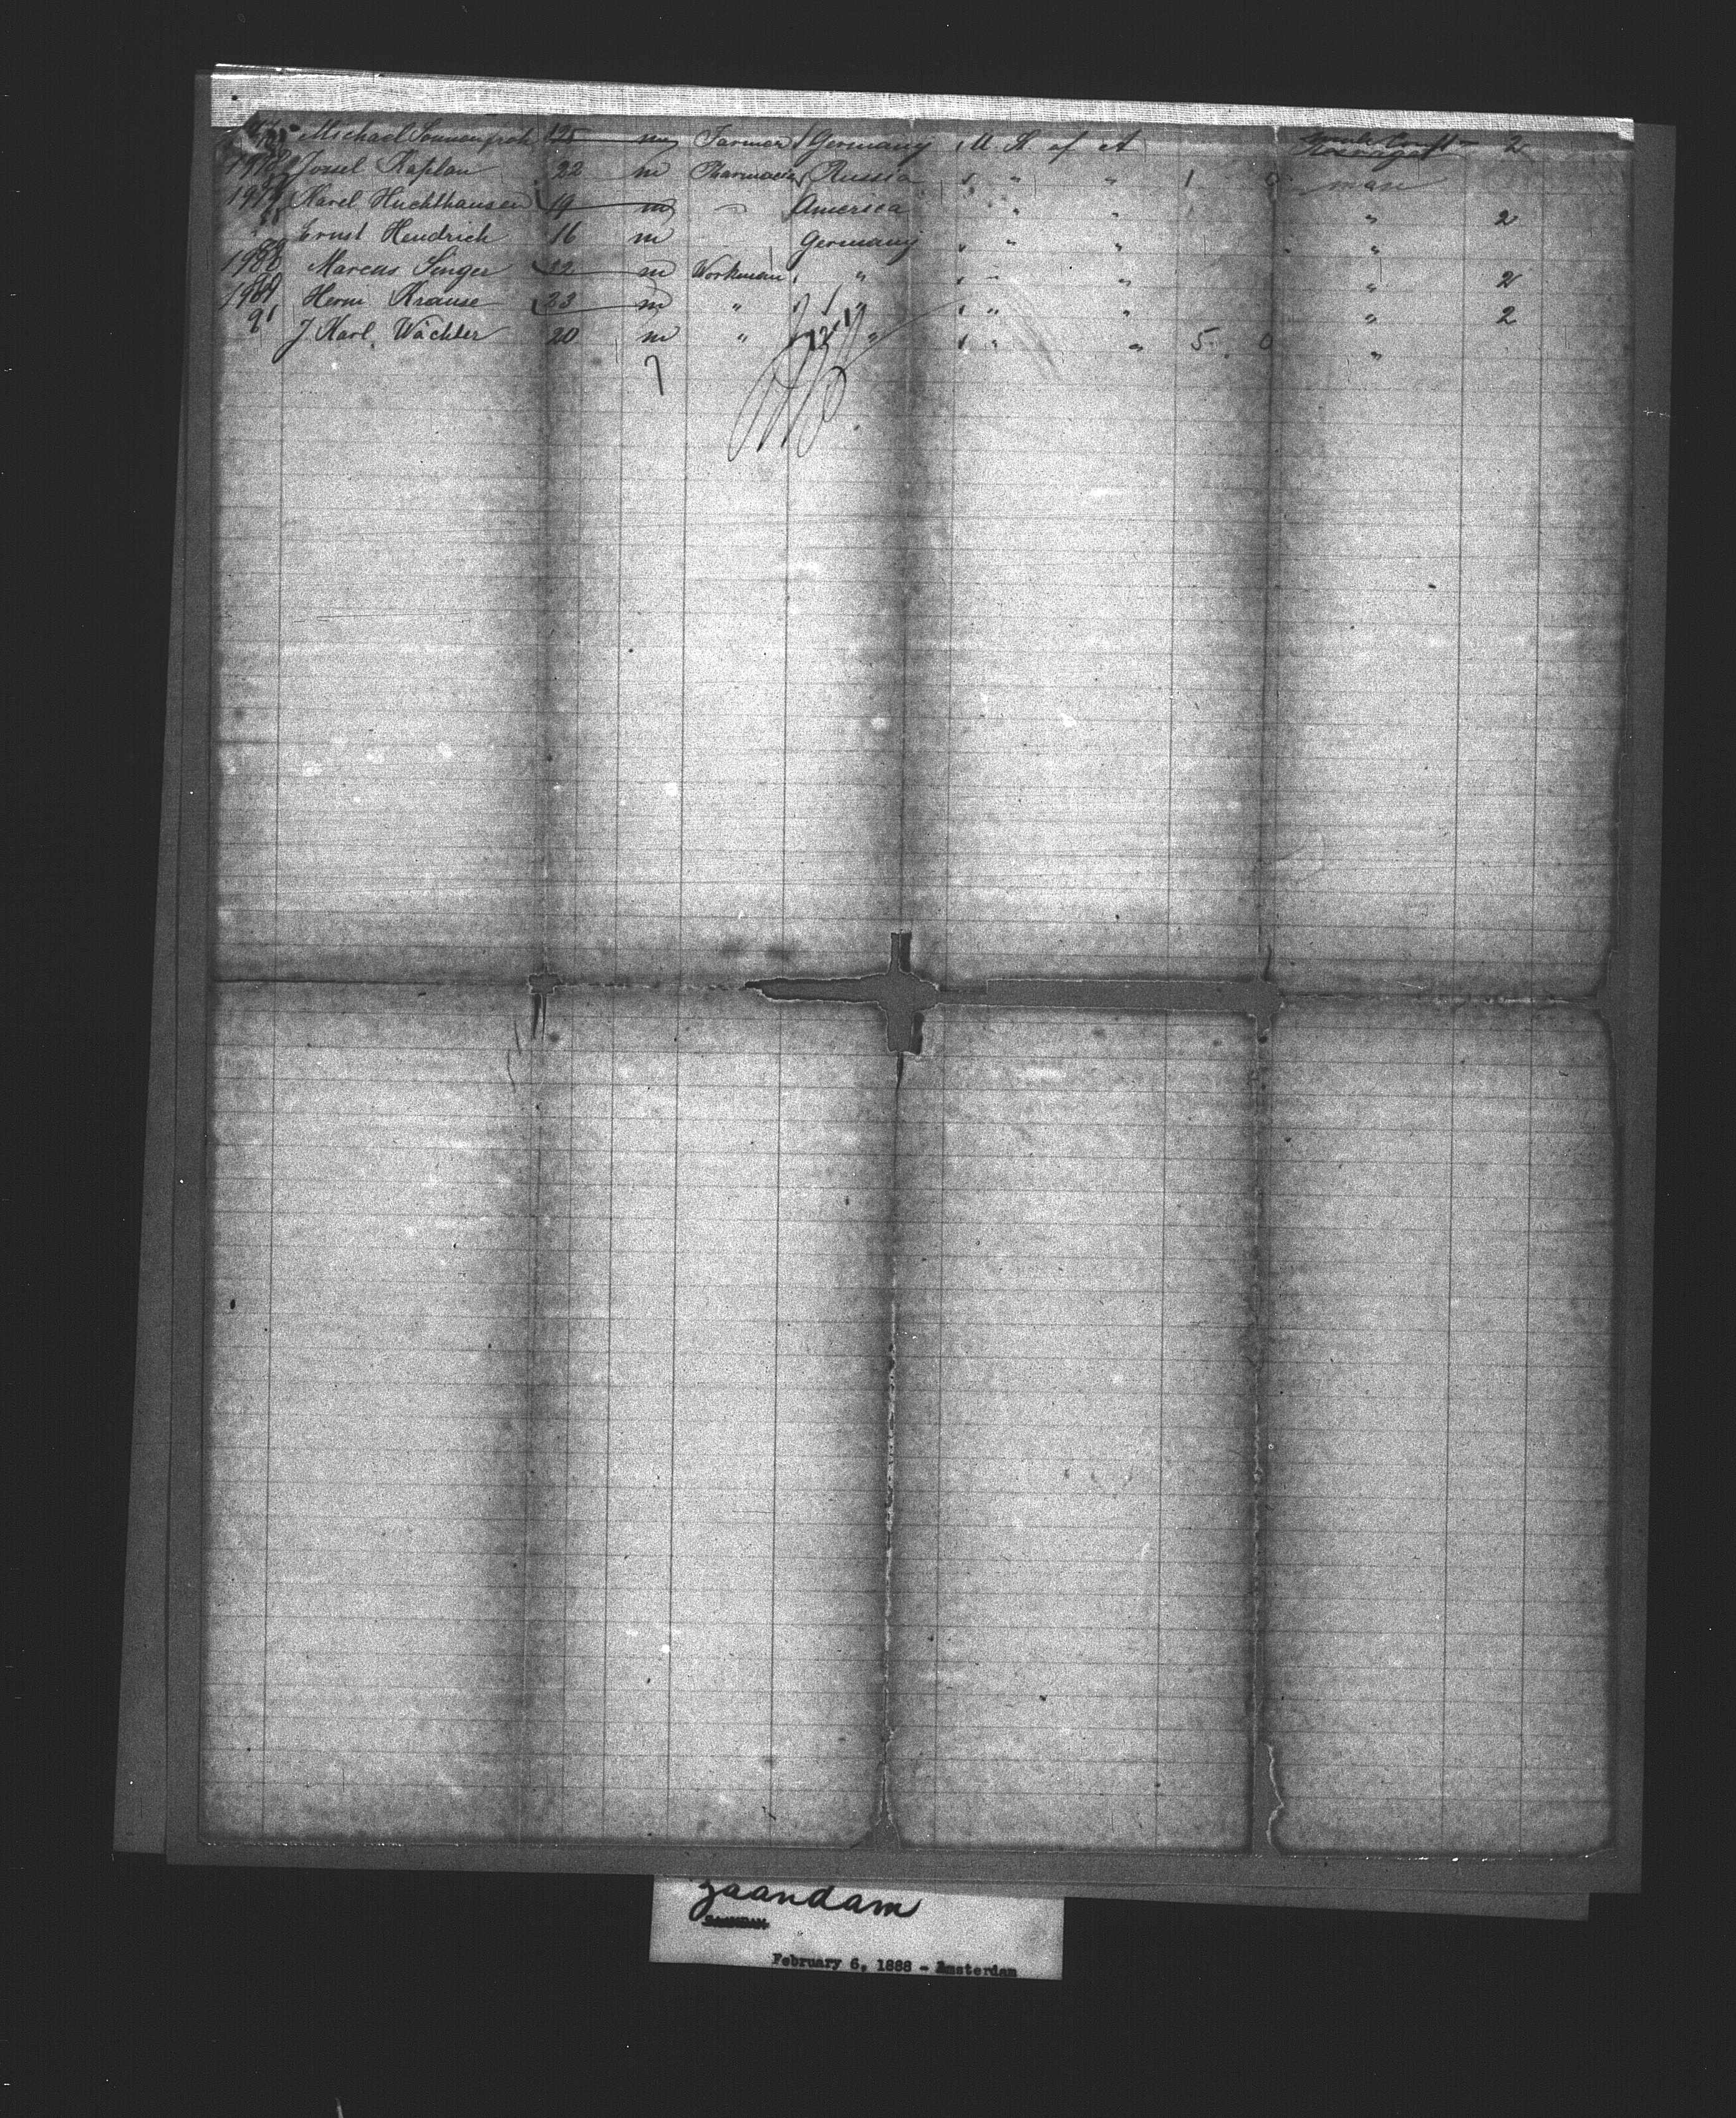 Michael Sonnenfroh 25 m Farmer Germany U. St. of A 2
Jossel Kaplan 22 m Pharmacist Russia " " 1 0 man
Karel Huchthausen 19 m — America " " " 2
Ernst Hendrich 16 m Germany " " "
Marcus Singer 22 m Workman " " " " 2
Herm Krause 23 m " " " " " 2
91 J. Karl Wächter 20 m " " " " 5 0 "
7
Zaandam
February 6, 1888 - Amsterdam